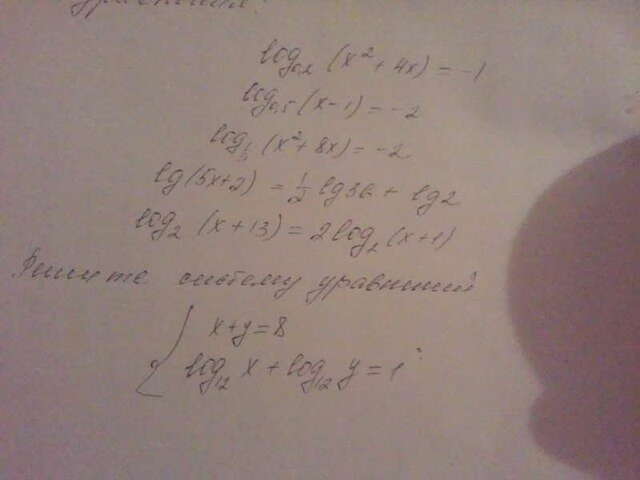 log₀,₂ (x² + 4x) = -1
log₀,₅ (x-1) = -2
log (x² + 8x) = -2
lg(5x+2) = ½ lg36 + lg2
log₂ (x + 13) = 2 log₂ (x+1)
Решите систему уравнений
x+y=8
log₁₂ x + log₁₂ y = 1